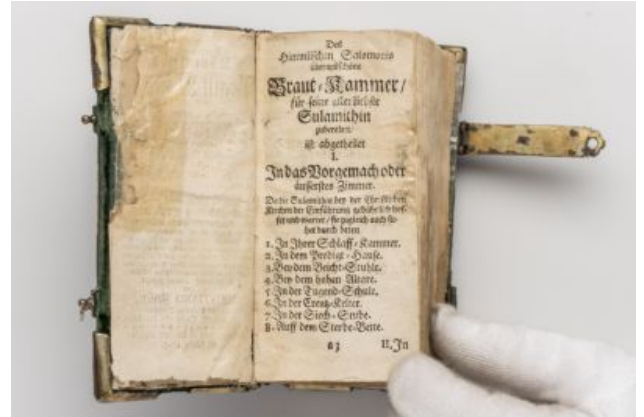 Des
Himmlischen Salomons
Braut-Kammer/
für seine allerliebste
Sulamithin
zubereitet/
ist abgetheilet
I.
In das Vorgemach oder
äusserstes Zimmer.
Da die Sulamithin bey der Christlichen
Kirchen der Einführung
1. In Ihrer Schlaff-Kammer.
2. In dem Predigt-Hause.
3. Bey dem Beicht-Stuhle.
4. Bey dem hohen Altare.
5. In der Tugend-Schule.
6. In der Creutz-Kelter.
7. In der Siech-Stube.
8. Auff dem Sterbe-Bette.
a3 II. In